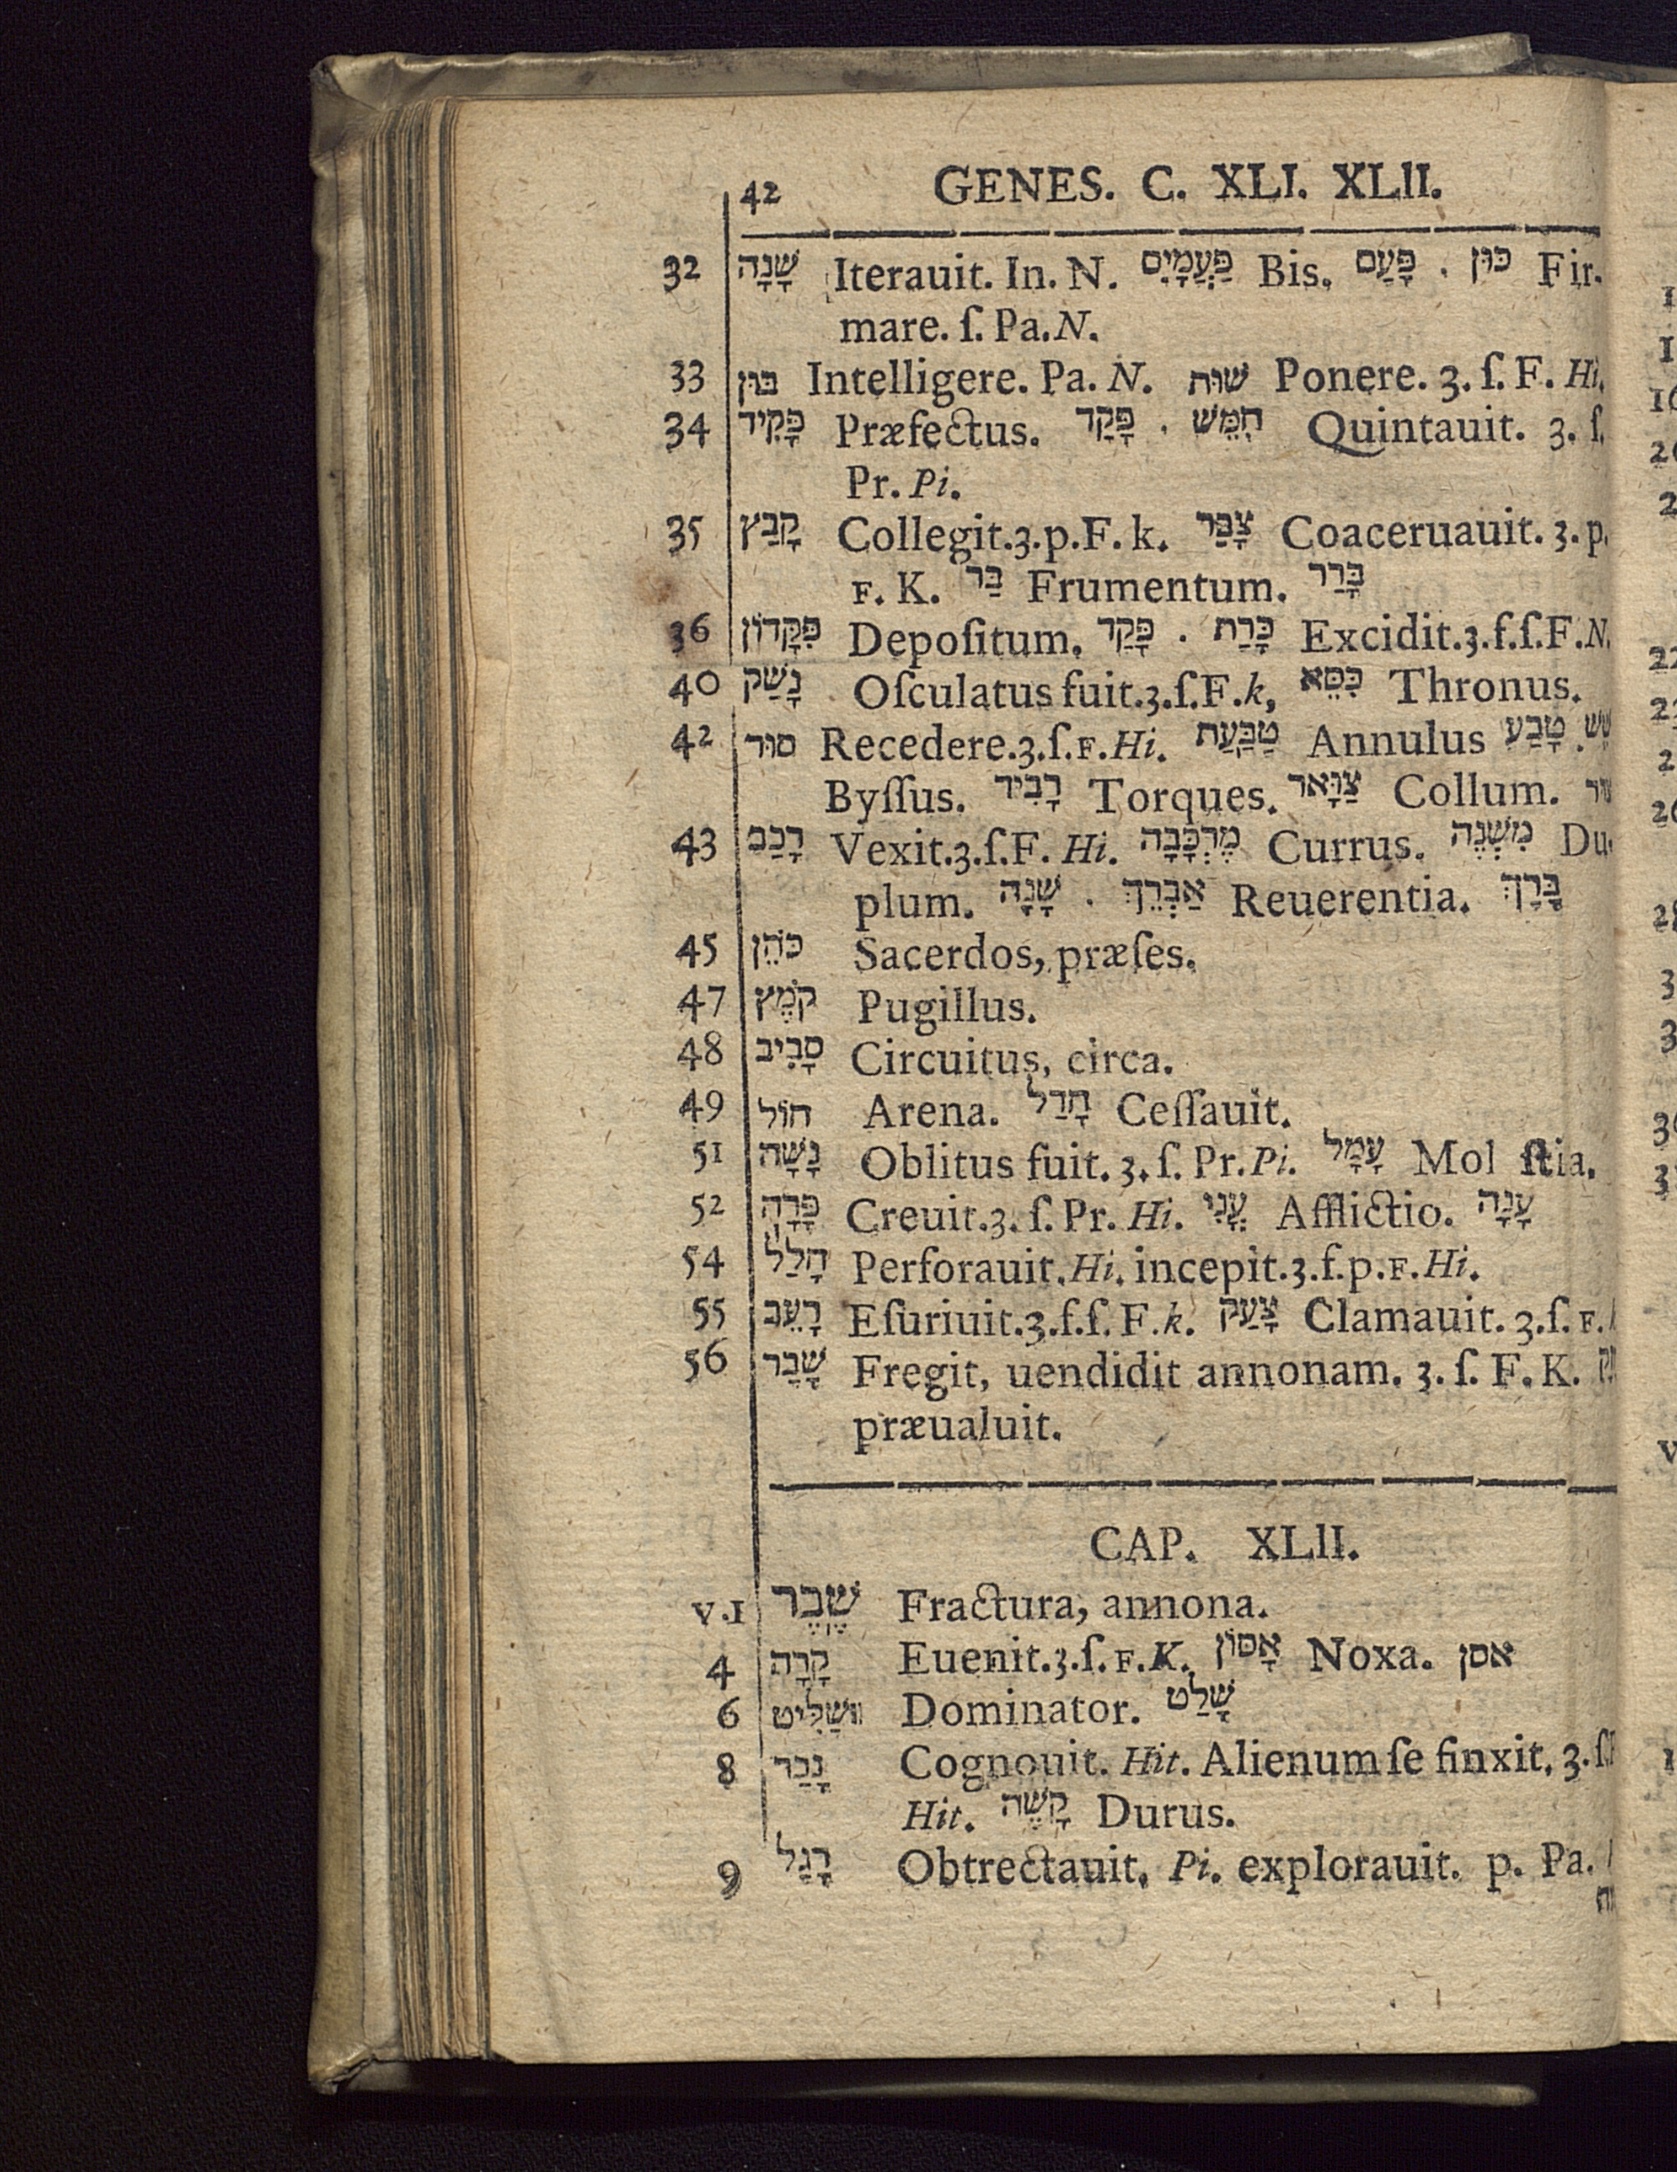 42 GENES. C. XLI. XLII.
32 שָׁנָה Iterauit. In. N. פַּעֲמַָיִם Bis. פָּעַם . כּוּן Fir.
mare. ſ. Pa. N.
33 בּוּן Intelligere. Pa. N. שׁוּת Ponere. 3. ſ. F. Hi.
34 פָּקִיד Præfectus. פָּקַד . חִמֵּשׁ Quintauit. 3. ſ.
Pr. Pi.
35 קָבַץ Collegit.3.p.F. k. צָבַר Coaceruauit. 3. p.
F. K. בַּר Frumentum. בָּרַר
36 פִּקָּדוֹן Depoſitum. פָּקַד . כָּרַת Excidit.3.f.ſ.F.N.
40 נָשַׁק Oſculatus fuit.3.ſ.F.k, כִּסֵּא Thronus.
42 סוּר Recedere.3.ſ.F.Hi. טַבַּעַת Annulus טָבַע. שֵׁשׁ
Byſſus. רָבִיד Torques. צַוָּאר Collum.
43 רָכַב Vexit.3.ſ.F. Hi. מֶרְכָּבָה Currus. מִשְׁנֶה Du
plum. שָׁנָה . אַבְרֵךְ Reuerentia. בָּרַךְ
45 כֹּהֵן Sacerdos, præſes.
47 קֹמֶץ Pugillus.
48 סָבִיב Circuitus, circa.
49 חוֹל Arena. חָדַל Ceſſauit.
51 נָשָׁה Oblitus fuit. 3. ſ. Pr. Pi. עָמָל Mol ſtia.
52 פָּרָה Creuit.3. ſ. Pr. Hi. עֳנִי Afflictio. עָנָה
54 חָלַל Perforauit. Hi. incepit.3.f.p.F.Hi.
55 רָעֵב Eſuriuit.3.f.ſ. F.k. צָעַק Clamauit. 3.ſ. F.
56 שָׁבַר Fregit, uendidit annonam. 3. ſ. F. K.
præualuit.
CAP. XLII.
V.1 שֶׁבֶר Fractura, annona.
4 קָרָה Euenit.3.ſ.F.K. אָסוֹן Noxa. אסן
6 שַׁלִּיט Dominator. שָׁלַט
8 נָכַר Cognouit. Hit. Alienum ſe finxit. 3. ſ.
Hit. קָשֶׁה Durus.
9 רָגַל Obtrectauit. Pi. explorauit. p. Pa.